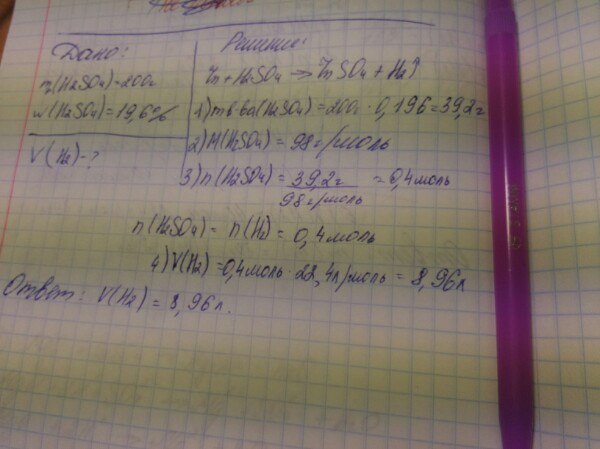 Дано:
m(H2SO4)=200г
w(H2SO4)=19,6%
V(H2)-?
Решение:
Zn+H2SO4→ZnSO4+H2↑
1)mв-ва(H2SO4)=200г·0,196=39,2г
2)M(H2SO4)=98г/моль
3)n(H2SO4)=39,2г/98г/моль=0,4моль
n(H2SO4)=n(H2)=0,4моль
4)V(H2)=0,4моль·22,4л/моль=8,96л
Ответ: V(H2)=8,96л.